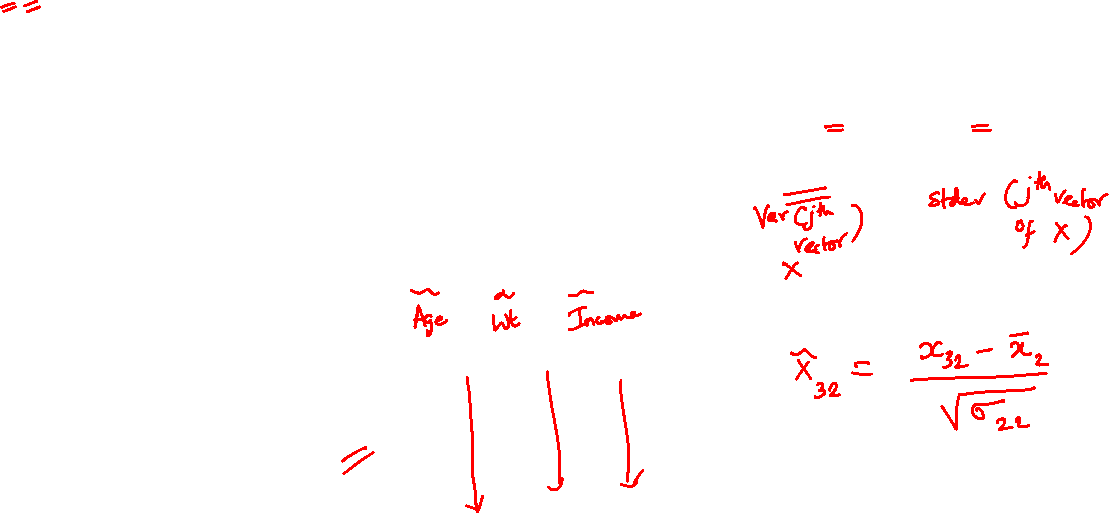 = =
= =
Var (jth vector) X
stdev (jth vector of X)
Age Wt Income
x̃32 = (x32 - x̄2) / √σ22
=